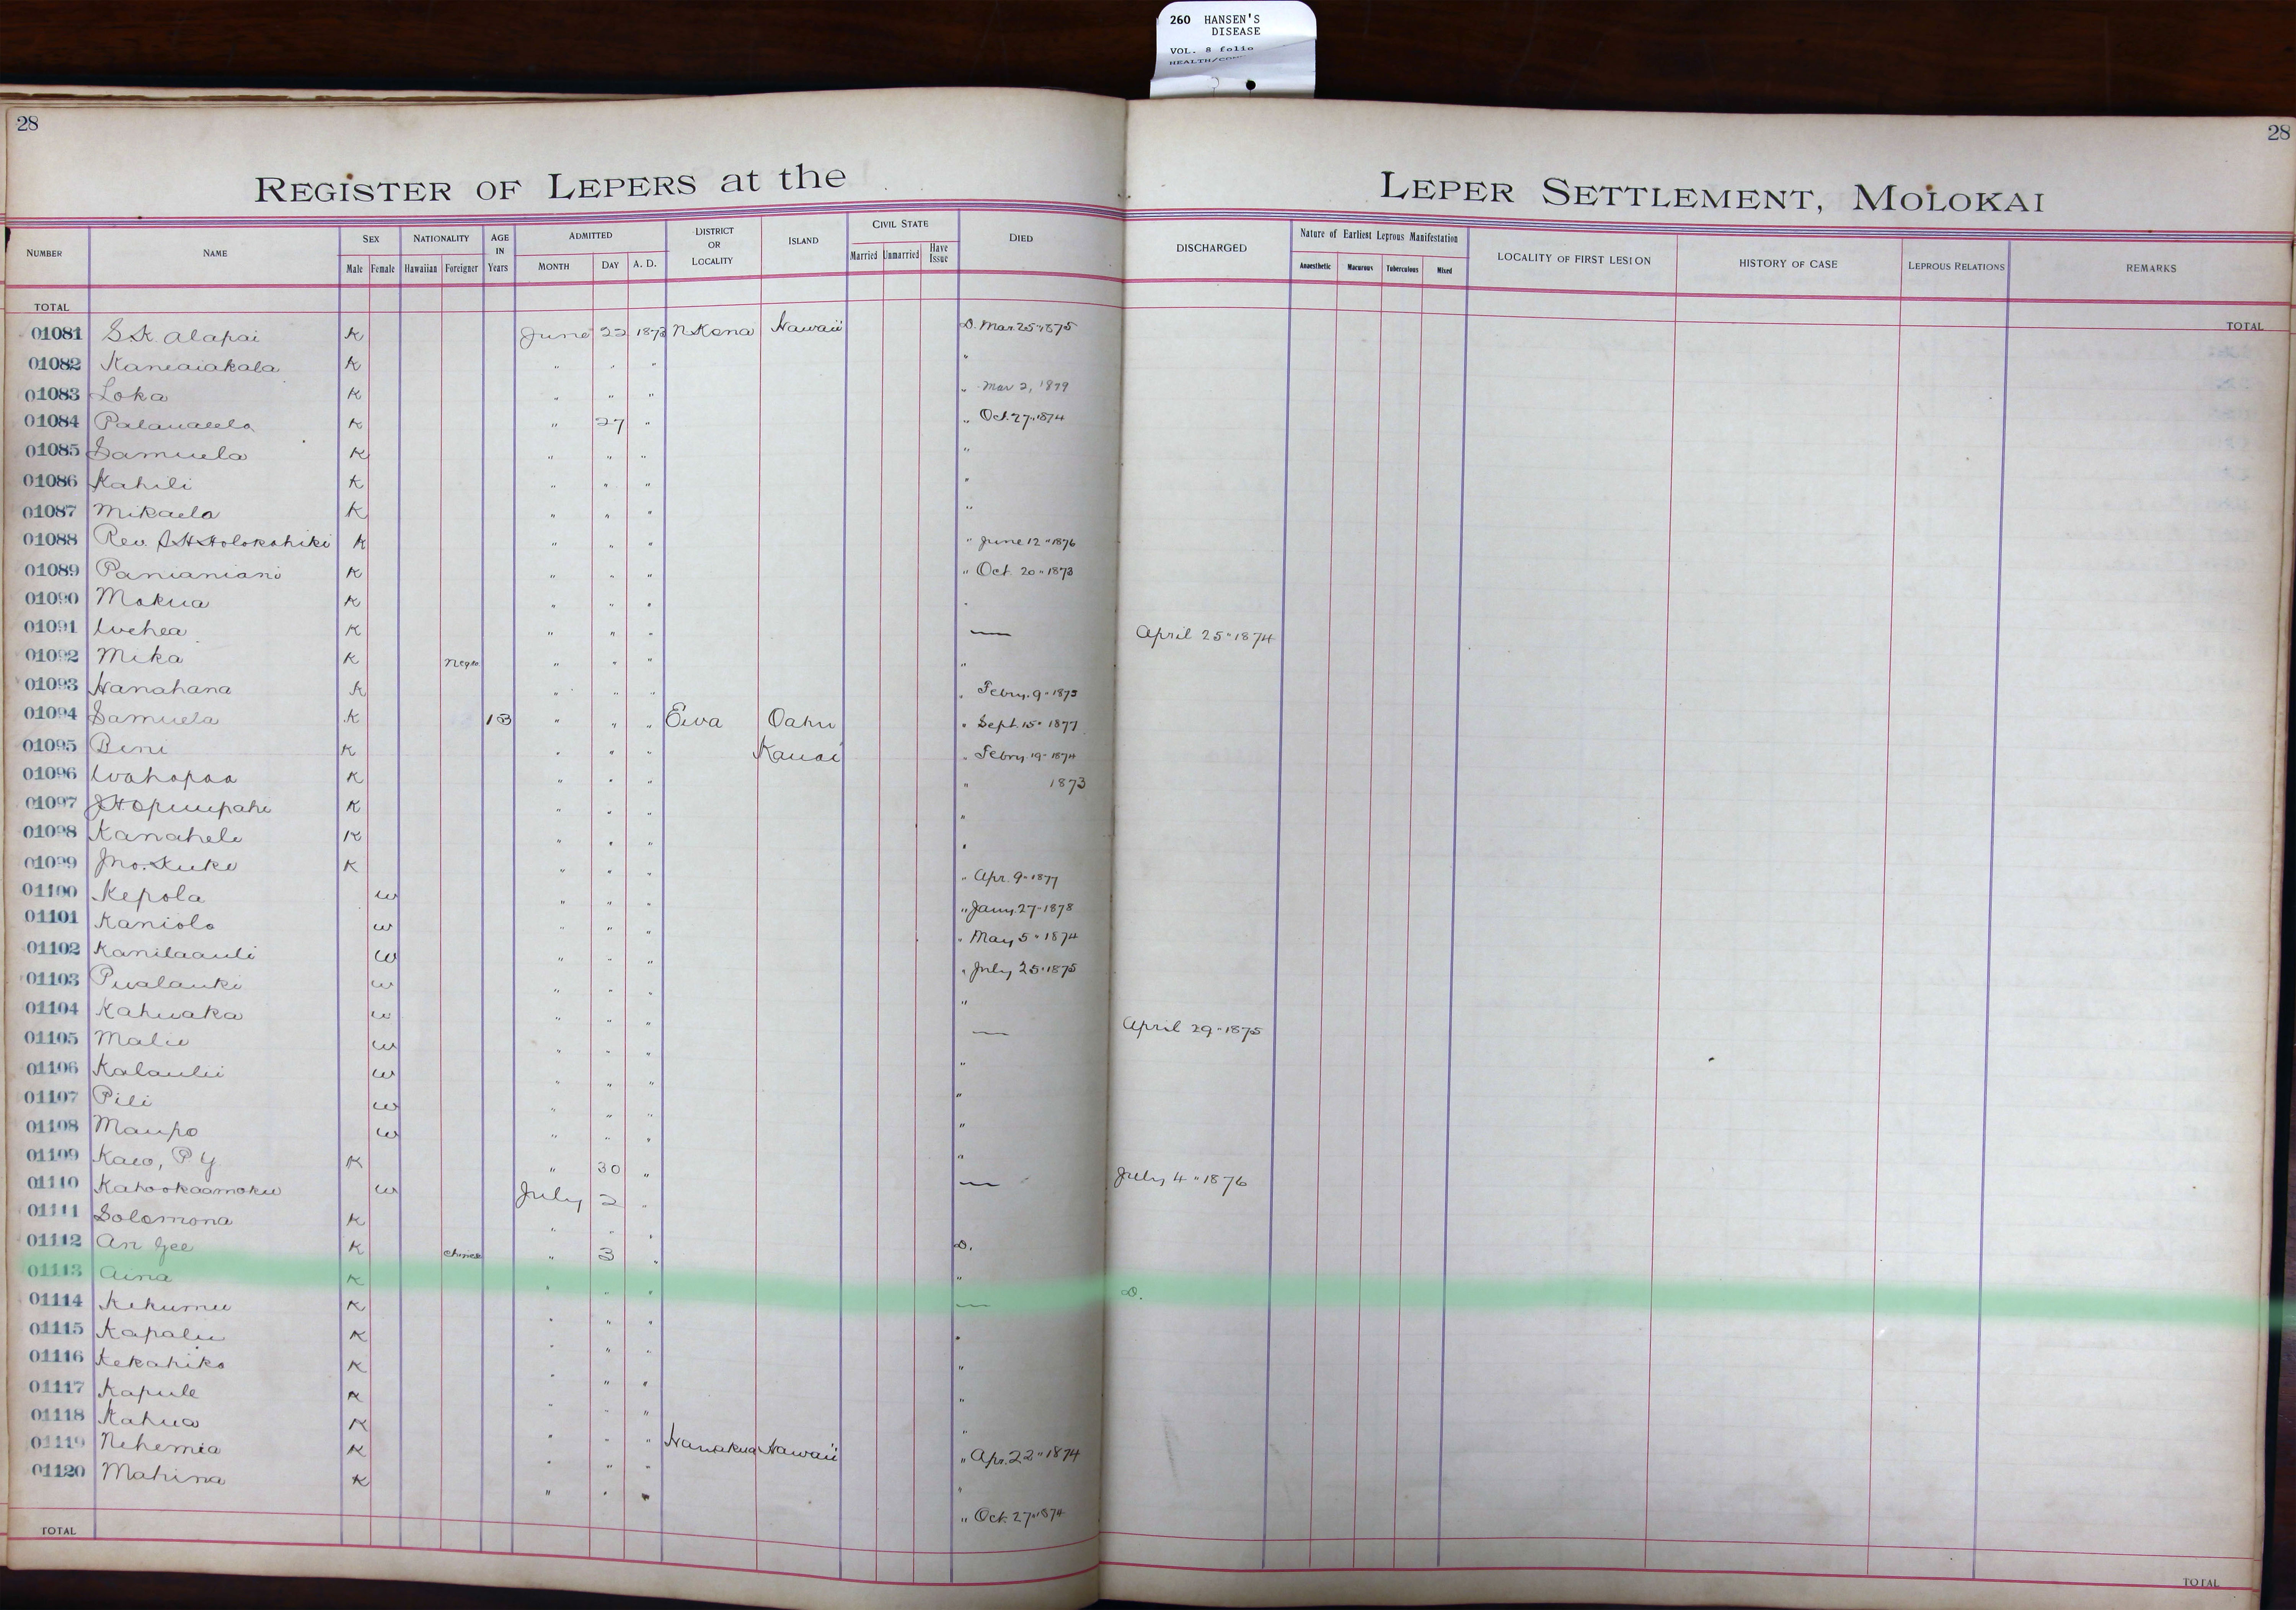 260 HANSEN'S
DISEASE
VOL. 8 folio
28
28
REGISTER OF LEPERS at the LEPER SETTLEMENT, MOLOKAI
NUMBER NAME SEX NATIONALITY AGE IN Years ADMITTED DISTRICT OR LOCALITY ISLAND CIVIL STATE DIED DISCHARGED Nature of Earliest Leprous Manifestation LOCALITY OF FIRST LESION HISTORY OF CASE LEPROUS RELATIONS REMARKS
Male Female Hawaiian Foreigner MONTH DAY A. D. Married Unmarried Have Issue Anaesthetic Macurous Tuberculous Mixed
TOTAL TOTAL
01081 S.K. Alapai K June 22 1873 N Kona Hawaii D. Mar. 25 " 1875
01082 Kaneaiakala K " " " "
01083 Loka K " " " " Mar 2, 1879
01084 K " 27 " " Oct. 27 " 1874
01085 Samuela K " " " "
01086 Kahili K " " " "
01087 Mikaela K " " " "
01088 Rev. S H Holokahiki K " " " " June 12 " 1876
01089 Panianiani K " " " " Oct. 20 " 1873
01090 Mokua K " " " "
01091 K " " " — April 25 " 1874
01092 Mika K Negro " " " "
01093 Hanahana K " " " " Febry. 9 "
01094 Samuela K 13 " " " Ewa Oahu " Sept. 15 " 1877
01095 Beni K " " " Kauai " Febry 19 " 1874
01096 Wahapaa K " " " " 1873
01097 K " " " "
01098 Kanahele K " " " "
01099 Jno. K " " " " Apr. 9 " 1877
01100 Kepola W " " " " Jany. 27 " 1878
01101 Kaniolo W " " " " May 5 " 1874
01102 Kanilaauli W " " " " July 25 " 1875
01103 Pualauki W " " " "
01104 Kahuaka W " " " — April 29 " 1875
01105 Malie W " " " "
01106 Kalaulii W " " " "
01107 Pili W " " " "
01108 Maupo W " " " "
01109 Kaeo, P Y K " 30 " — July 4 " 1876
01110 Kahookaamoku W July 2 "
01111 Solomona K " " " D.
01112 An Gee K Chinese " 3 " "
01113 Aina K " " " — D.
01114 Kekumu K " " " "
01115 Kapalu K " " " "
01116 Kekahiko K " " " "
01117 Kapule K " " " "
01118 Kahua K " " " Hamakua Hawaii " Apr. 22 " 1874
01119 Nehemia K " " " "
01120 Mahina K " " " " Oct. 27 " 1874
TOTAL TOTAL